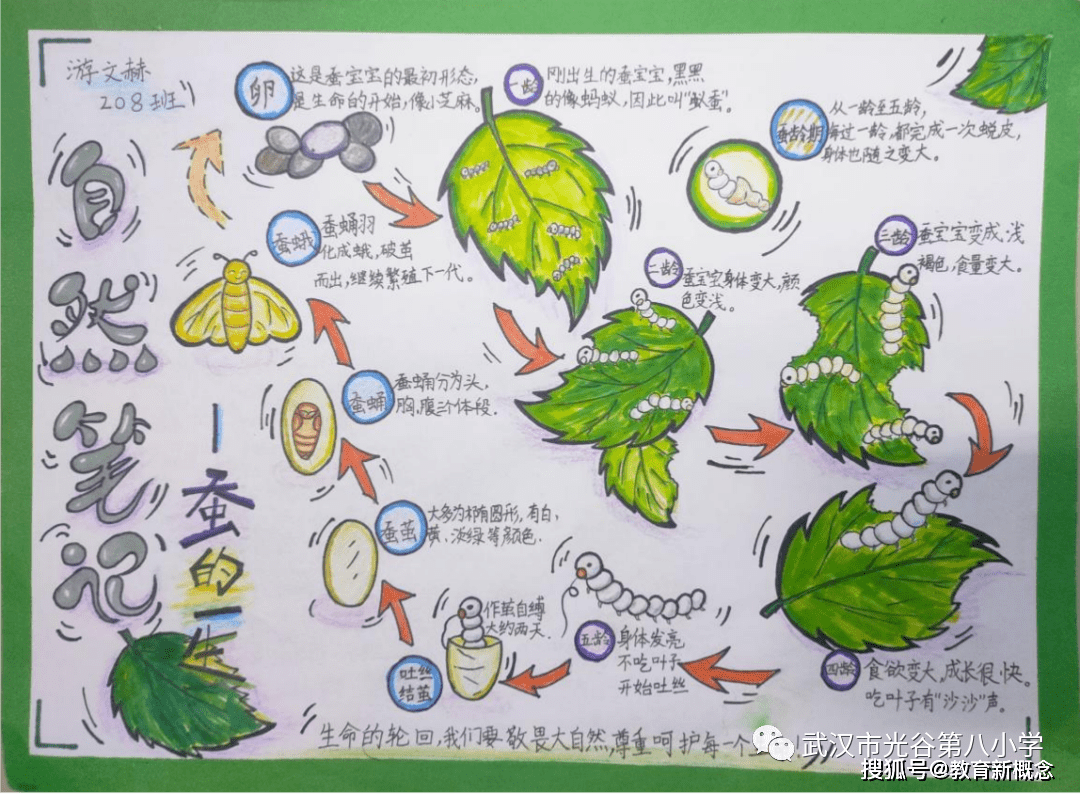 游文赫
208班
自然笔记
—蚕的一生
卵
这是蚕宝宝的最初形态,
是生命的开始,像小芝麻。
一龄
刚出生的蚕宝宝,黑黑
的像蚂蚁,因此叫"蚁蚕"。
蚕龄期
从一龄至五龄,
每过一龄,都完成一次蜕皮,
身体也随之变大。
二龄
蚕宝宝身体变大,颜
色变浅。
三龄
蚕宝宝变成浅
褐色,食量变大。
四龄
食欲变大,成长很快。
吃叶子有"沙沙"声。
五龄
身体发亮
不吃叶子
开始吐丝
吐丝
结茧
作茧自缚
大约两天.
蚕茧
大多为椭圆形,有白、
黄、淡绿等颜色.
蚕蛹
蚕蛹分为头、
胸、腹三个体段.
蚕蛾
蚕蛹羽
化成蛾,破茧
而出,继续繁殖下一代。
生命的轮回,我们要敬畏大自然,尊重呵护每一个
武汉市光谷第八小学
搜狐号@教育新概念